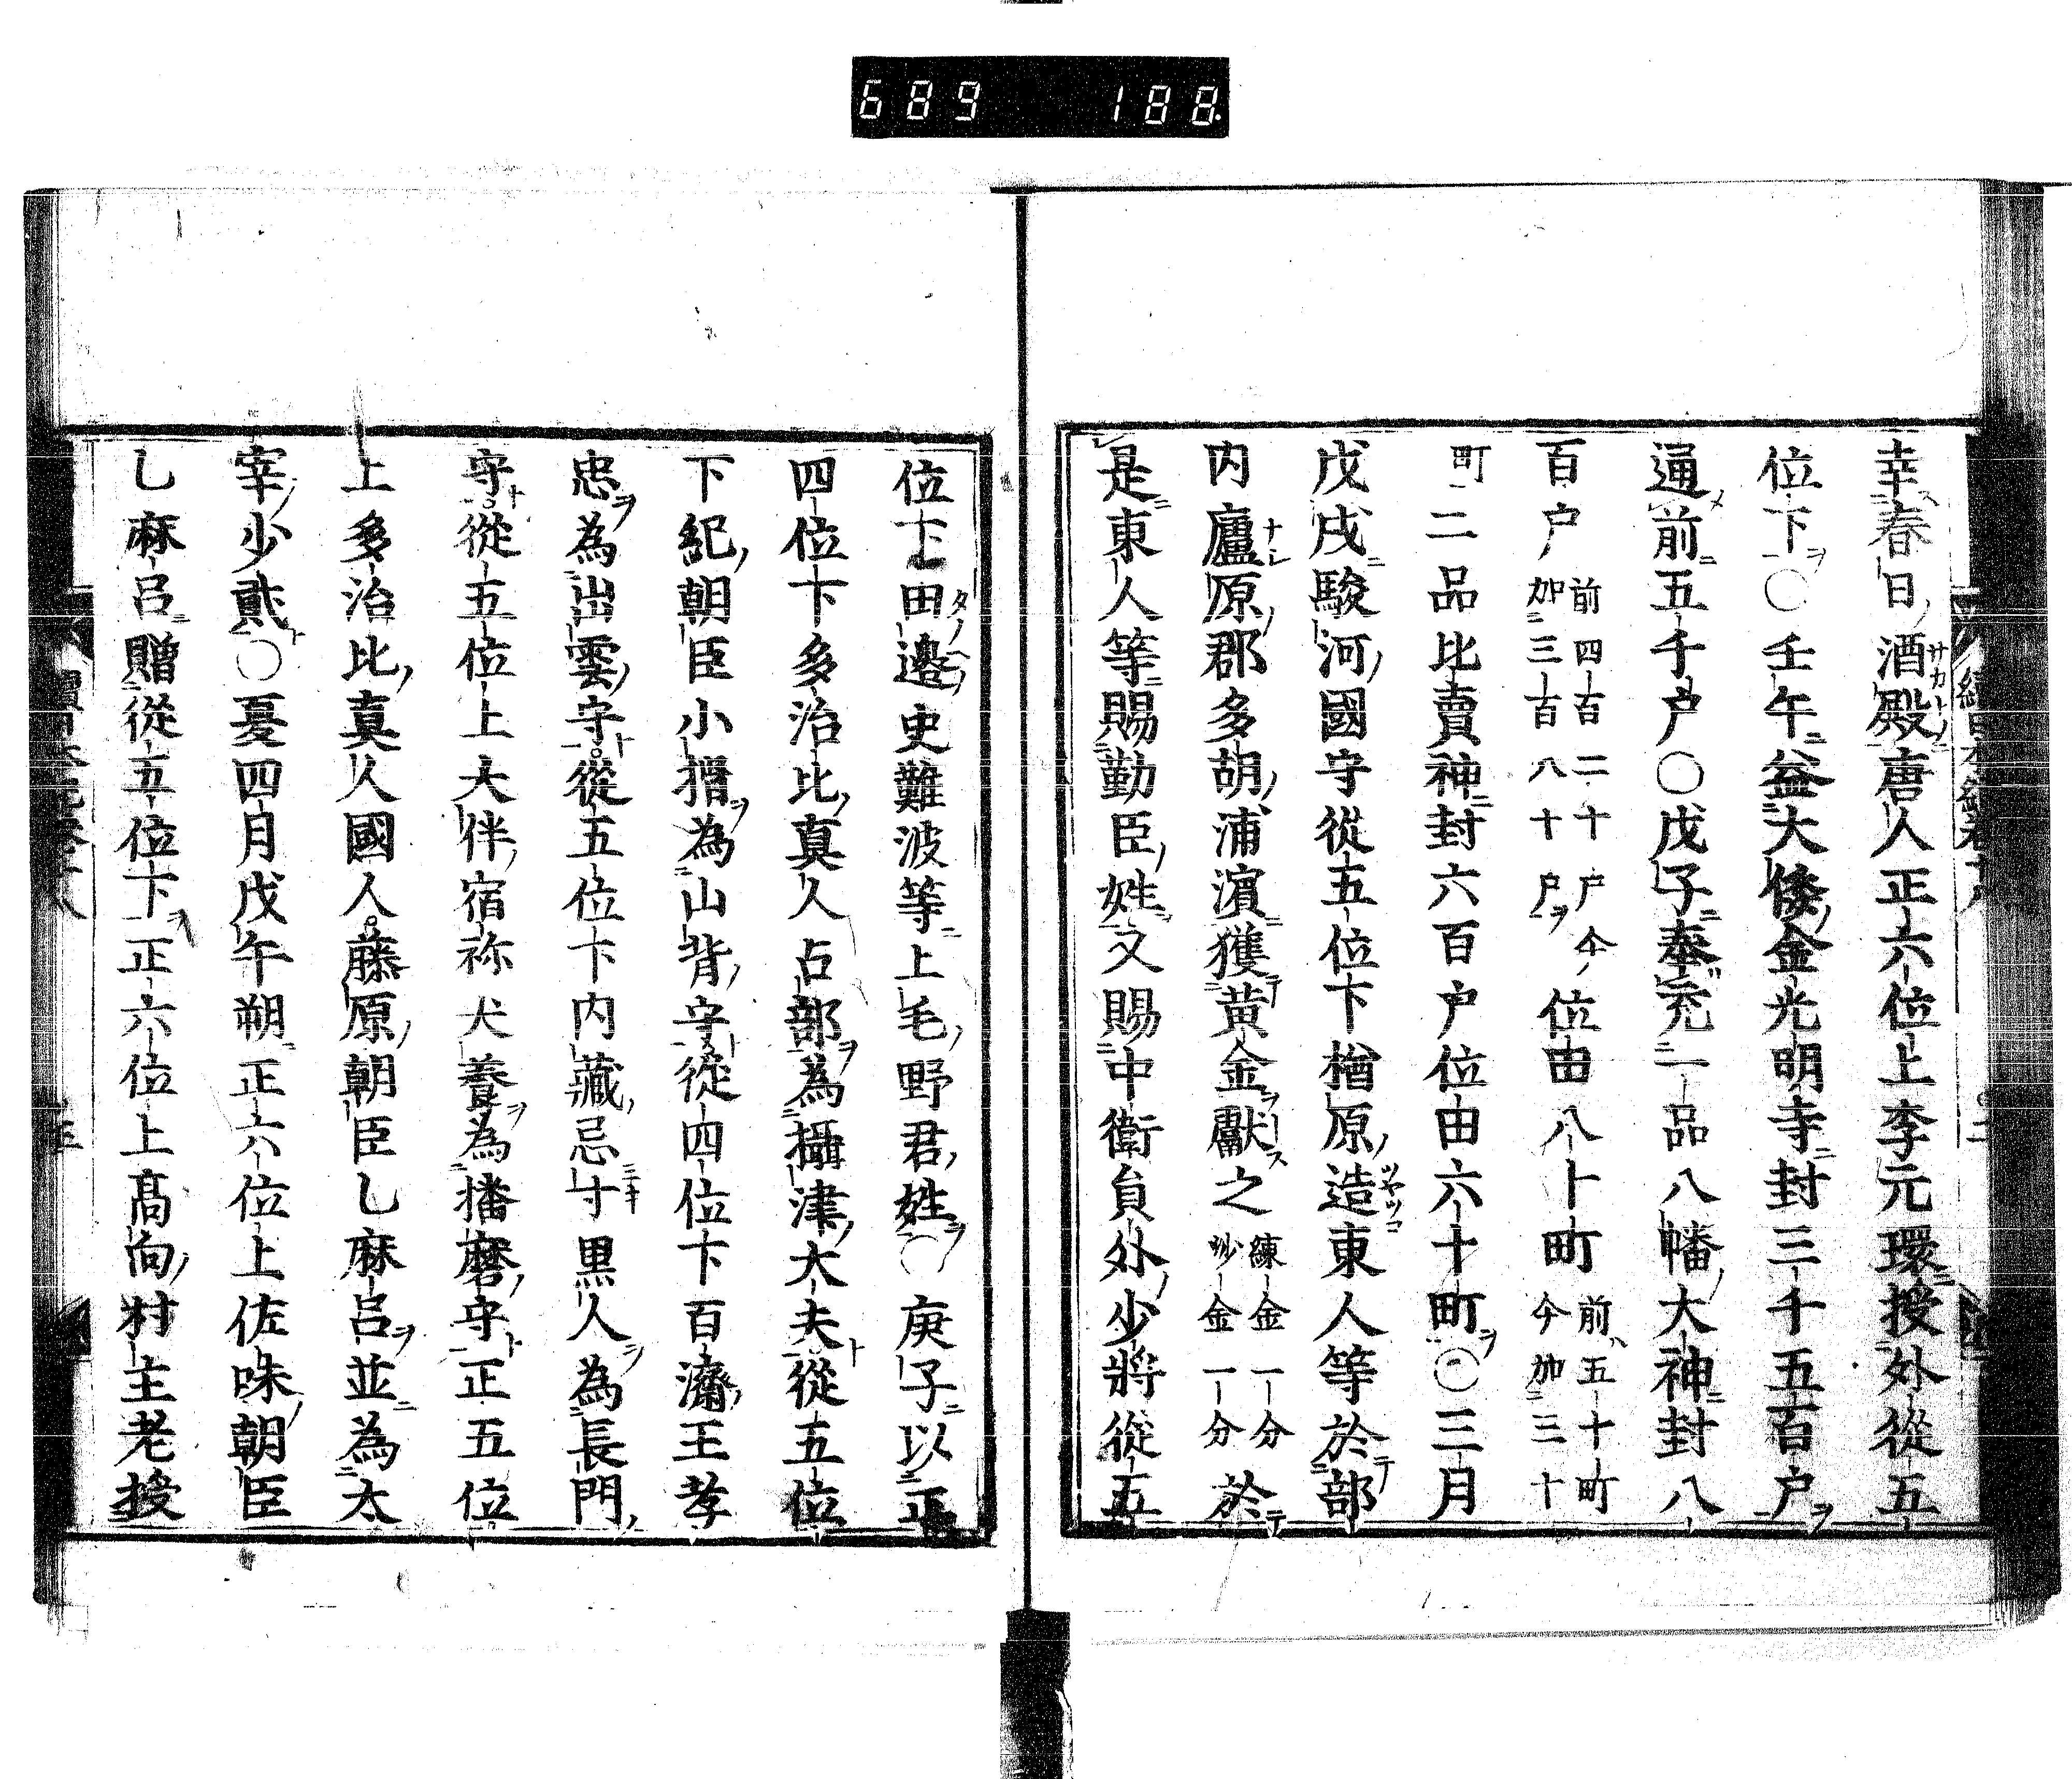 689 188
幸春日酒殿唐人正六位上李元環授外從五
位下〇壬午益大倭金光明寺封三千五百戸
通前五千戸〇戊子奉充一品八幡大神封八
百戸前四百二十戸今加三百八十戸位田八十町前五十町今加三十
町二品比賣神封六百戸位田六十町〇三月
戊戌駿河國守從五位下楢原造東人等於部
内廬原郡多胡浦濱獲黄金獻之練金一分沙金一分於
是東人等賜勤臣姓又賜中衛員外少將從五
位下田邊史難波等上毛野君姓〇庚子以正
四位下多治比真人占部為攝津大夫從五位
下紀朝臣小揩為山背守從四位下百濟王孝
忠為出雲守從五位下内藏忌寸黒人為長門
守從五位上大伴宿祢犬養為播磨守正五位
上多治比真人國人藤原朝臣乙麻呂並為太
宰少貳〇夏四月戊午朔正六位上佐味朝臣
乙麻呂贈從五位下正六位上髙向村主老授